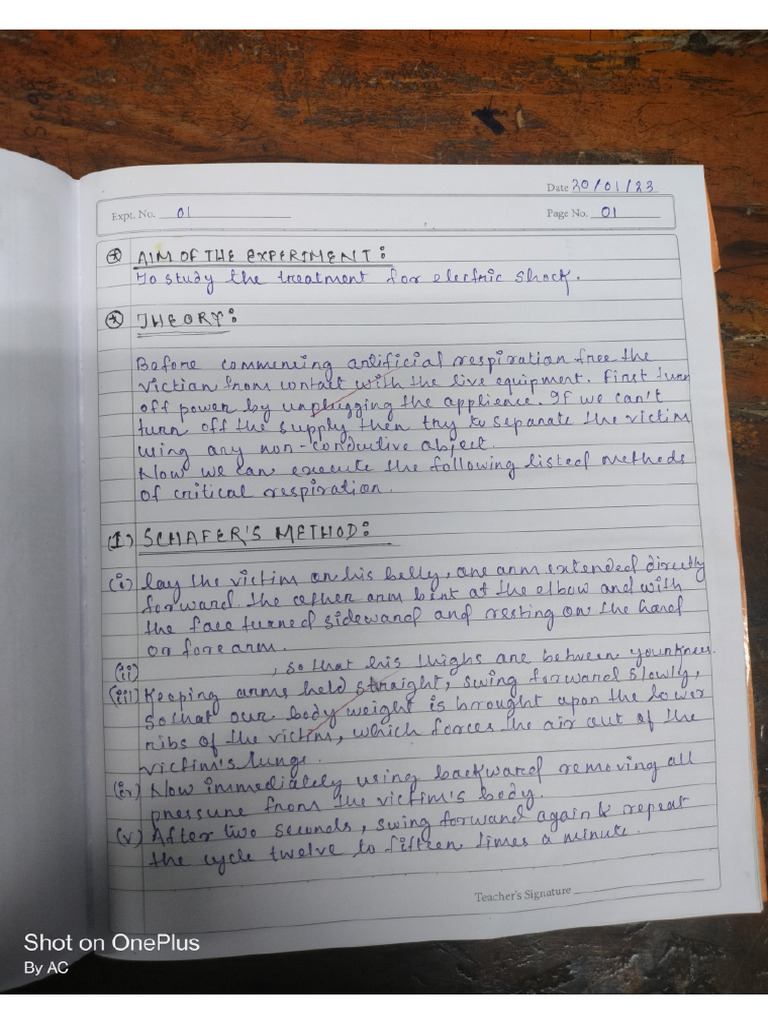 Date 20/01/23
Expt. No. 01
Page No. 01
AIM OF THE EXPERIMENT:
To study the treatment for electric shock.
THEORY:
Before commencing artificial respiration free the
victian from contact with the live equipment. First turn
off power by unplugging the applience. If we can't
turn off the supply then try to separate the victim
using any non-conductive object.
Now we can execute the following listed methods
of critical respiration.
(1) SCHAFER'S METHOD:
(i) lay the victim on his belly, one arm extended directly
forward the other arm bent at the elbow and with
the face turned sideward and resting on the hand
or forearm.
(ii) , so that his thighs are between your knees.
(iii) Keeping arms held straight, swing forward slowly,
so that our body weight is brought upon the lower
ribs of the victim, which forces the air out of the
victim's lungs.
(iv) Now immediately using backward removing all
pressure from the victim's body.
(v) After two seconds, swing forward again & repeat
the cycle twelve to fifteen times a minute.
Teacher's Signature
Shot on OnePlus
By AC